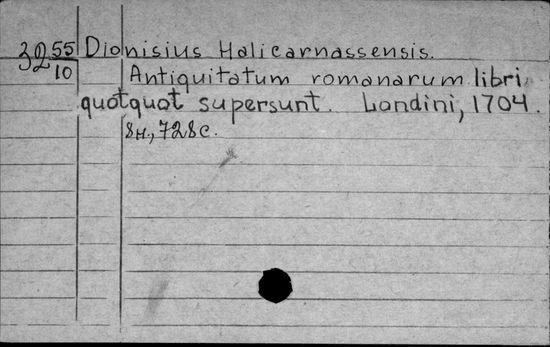 32 55/10 Dionisius Halicarnassensis.
Antiquitatum romanarum libri
quotquot supersunt. Londini, 1704.
8н., 728c.